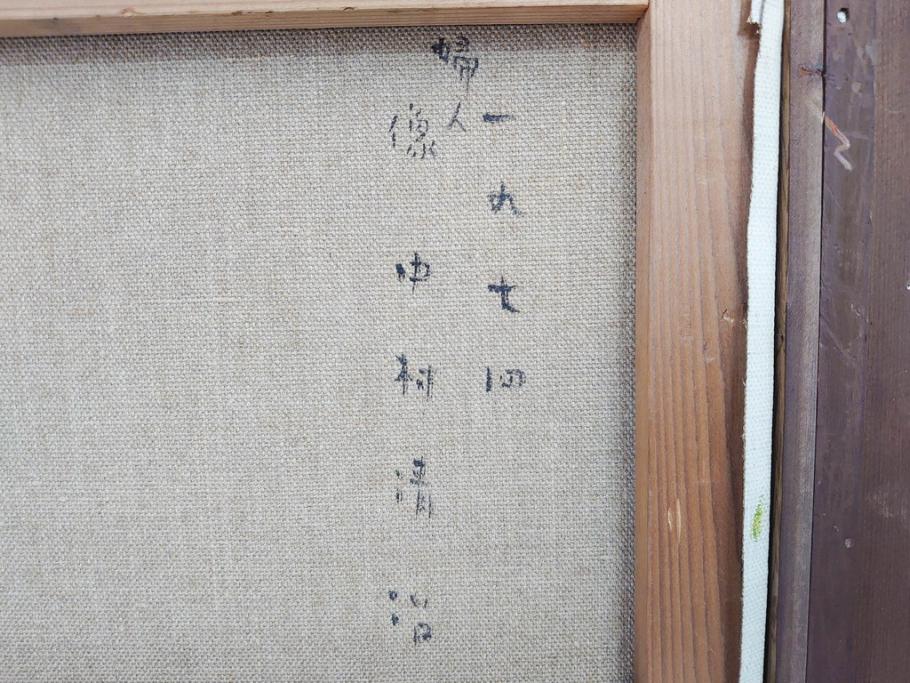 一九七四
婦人像
中村清治